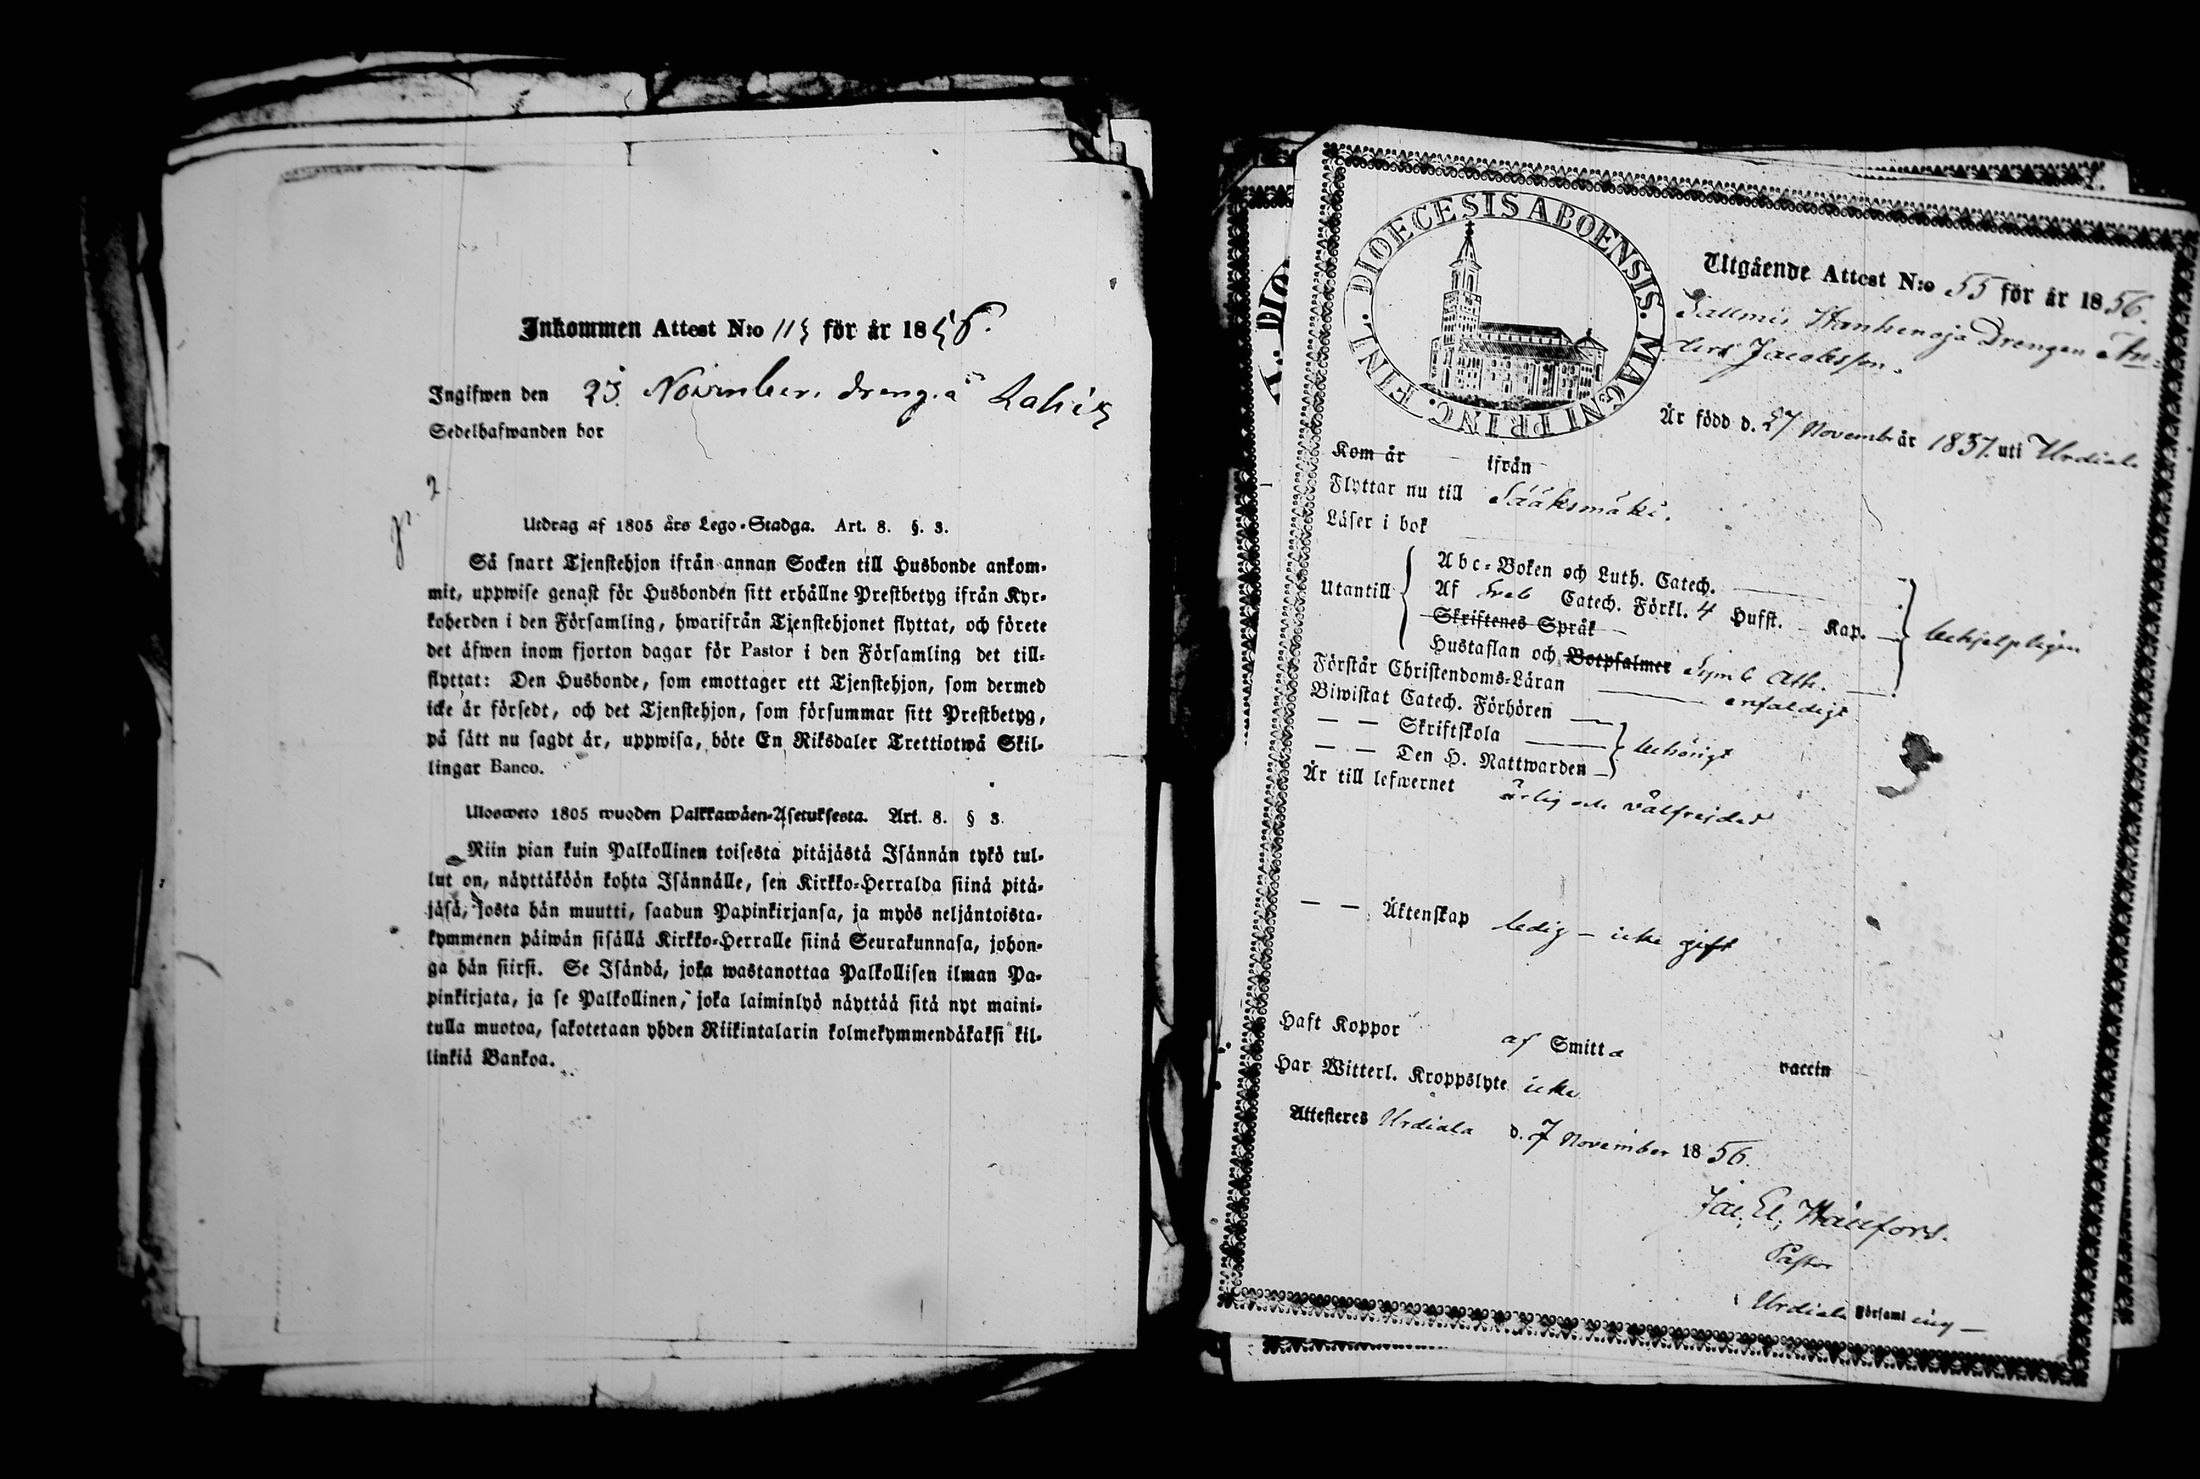 Inkommen Attest N:o 115 för år 1856.
Ingifwen den 23 November. dreng å
Sedelhafwanden bor
Utdrag af 1805 års Lego-Stadga. Art. 8. §. 3.
Så snart Tjenstehjon ifrån annan Socken till Husbonde ankom-
mit, uppwise genast för Husbonden sitt erhållne Prestbetyg ifrån Kyr-
koherden i den Församling, hwarifrån Tjenstehjonet flyttat, och förete
det äfwen inom fjorton dagar för Pastor i den Församling det till-
flyttat: Den Husbonde, som emottager ett Tjenstehjon, som dermed
icke är försedt, och det Tjenstehjon, som försummar sitt Prestbetyg,
på sätt nu sagdt är, uppwisa, böte En Riksdaler Trettiotwå Skil-
lingar Banco.
Ulosweto 1805 wuoden Palkkawäen-Asetuksesta. Art. 8. § 3.
Niin pian kuin Palkollinen toisesta pitäjästä Isännän tykö tul-
lut on, näyttäköön kohta Isännälle, sen Kirkko-Herralda siinä pitä-
jäsä, josta hän muutti, saadun Papinkirjansa, ja myös neljäntoista-
kymmenen päiwän sisällä Kirkko-Herralle siinä Seurakunnasa, johon-
ga hän siirsi. Se Isändä, joka wastanottaa Palkollisen ilman Pa-
pinkirjata, ja se Palkollinen, joka laiminlyö näyttää sitä nyt maini-
tulla muotoa, sakotetaan yhden Riikintalarin kolmekymmendäkaksi kil-
linkiä Bankoa.
DIOECESIS ABOENSIS. MAGNI PRINC. FINL.
Utgående Attest N:o 55 för år 1856.
Drengen An-
ders Jacobsson.
Är född d. 27 Novembr år 1837. uti Urdiala
Kom år ifrån
Flyttar nu till Sääksmäki.
Läser i bok
Utantill
Abc-Boken och Luth. Catech.
Af Sveb Catech. Förkl. 4 Hufst. Kap.
Skriftenes Språk
Hustaflan och Botpsalmer Symb Ath.
behjelpligen
Förstår Christendoms-Läran enfaldigt
Biwistat Catech. Förhören
— — Skriftskola
— — Den H. Nattwarden
behörigt
Är till lefwernet ärlig och välfrejdad
— — Äktenskap ledig – icke gift
Haft Koppor af Smitta vaccin
Har Witterl. Kroppslyte icke
Attesteres Urdiala d. 7 November 1856.
Pastor
Urdiala Församling